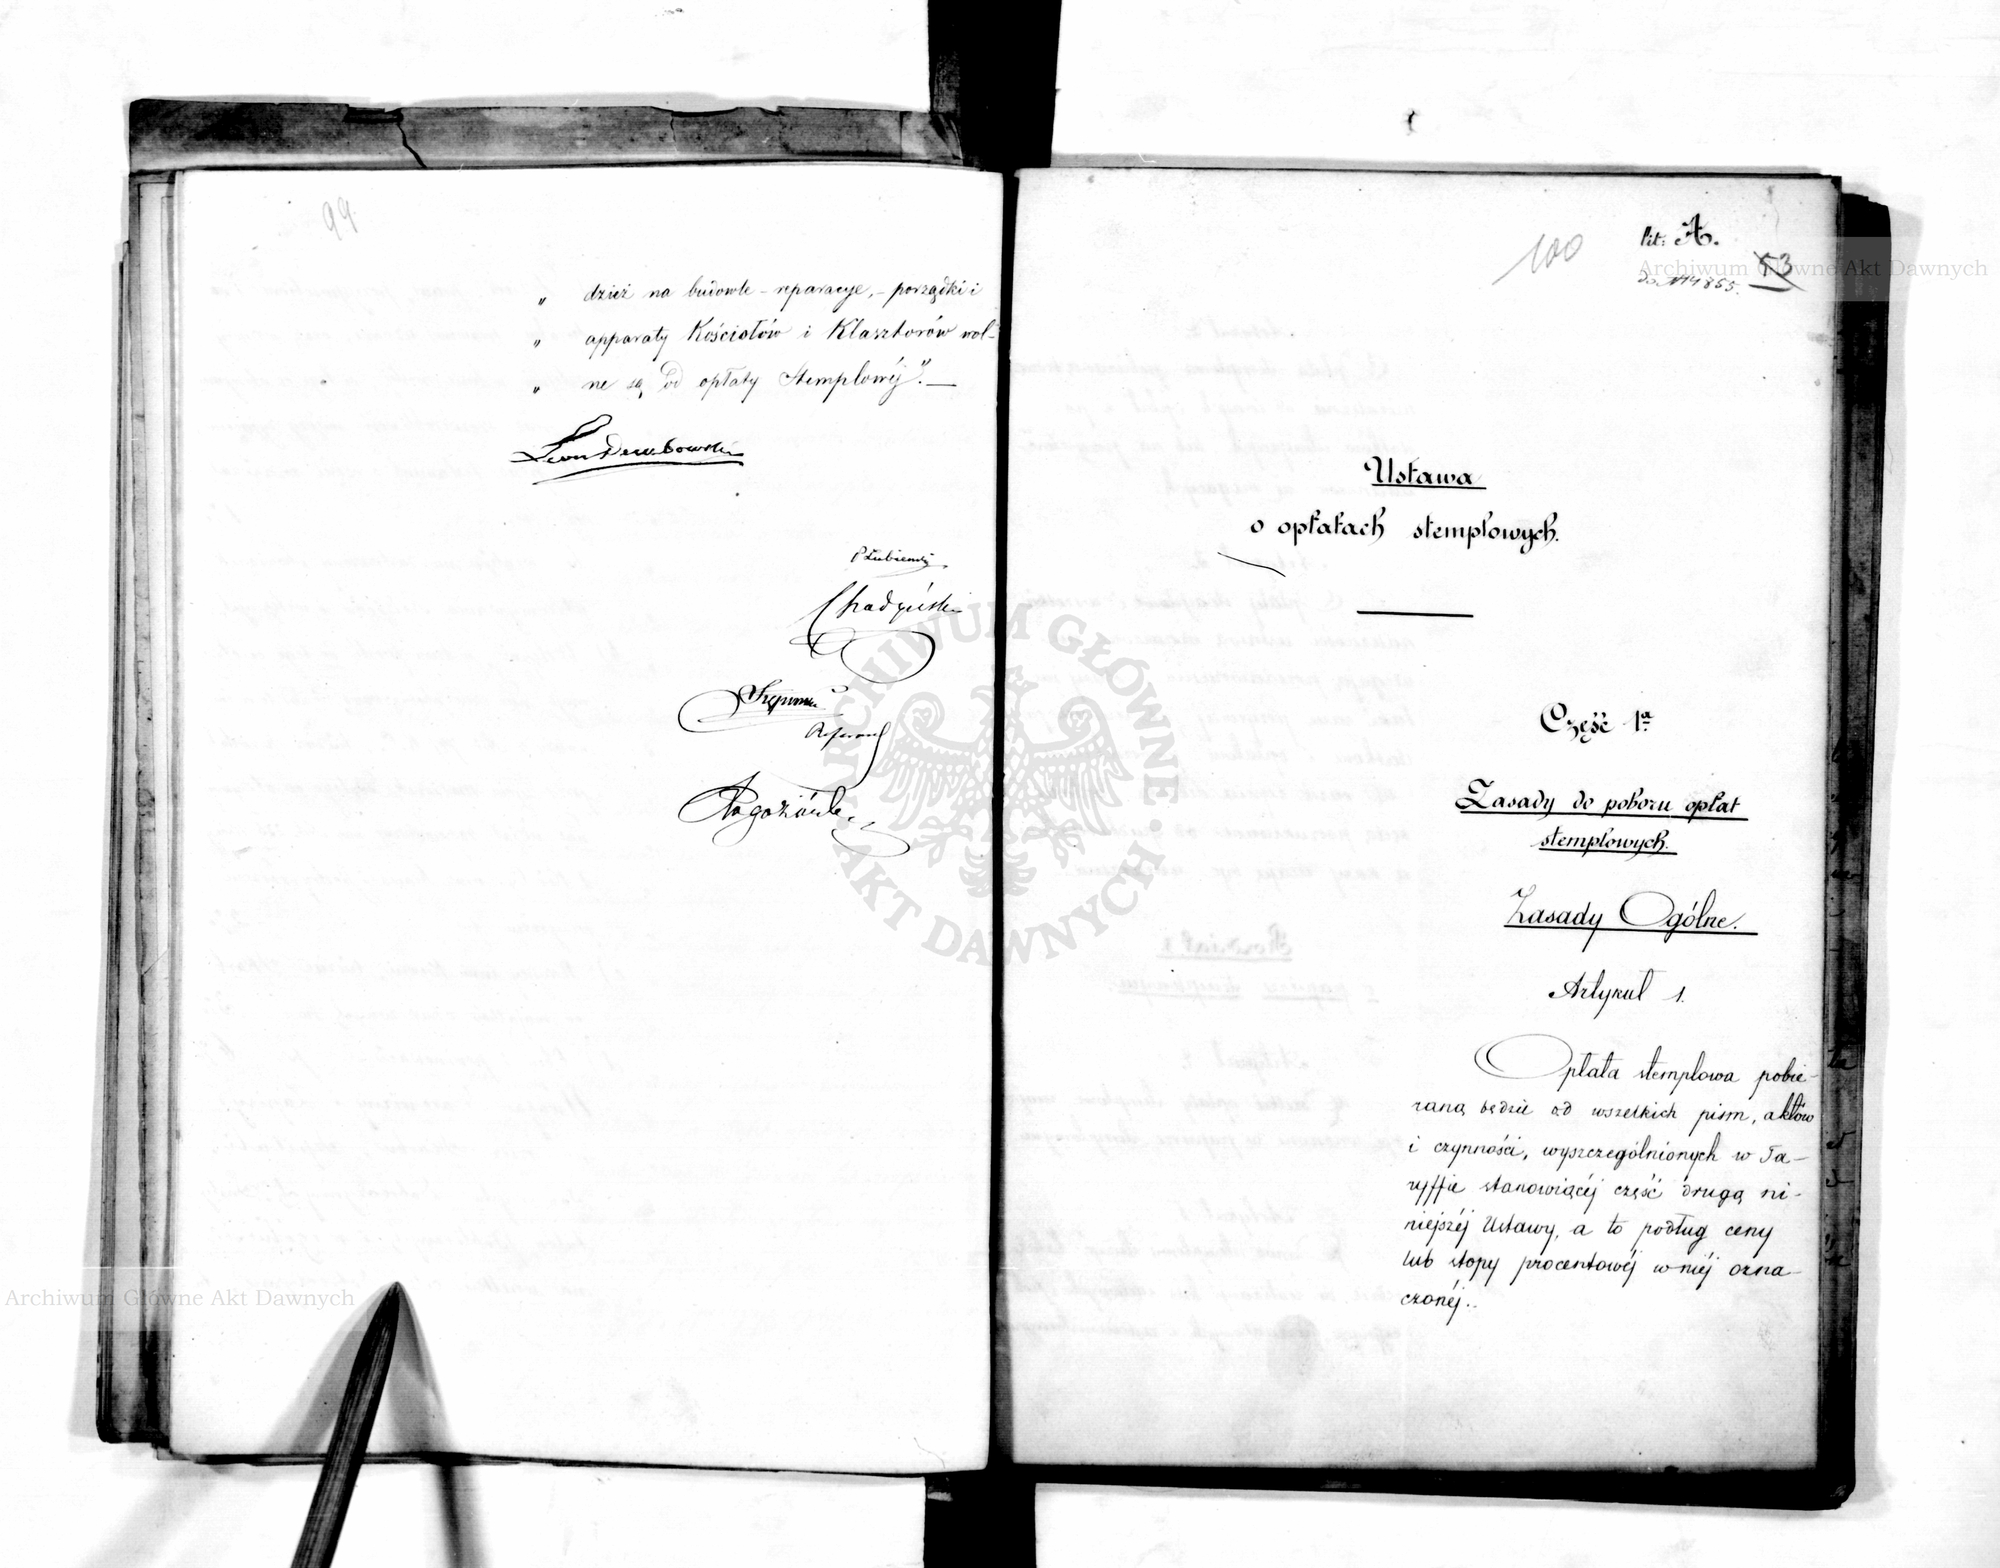 99
„ dzież na budowle – reparacye, – porządki i
„ apparaty Kościołów i Klasztorów wol-
„ ne są od opłaty Stemplowéj”. —
Leon Dembowski
PŁubieński
Rogoziński
100
Lit: A.
53
do N 14855.
Ustawa
o opłatach stemplowych.
Część 1a
Zasady do poboru opłat
stemplowych.
Zasady Ogólne.
Artykuł 1.
Opłata stemplowa pobie-
raną będzie od wszelkich pism, aktów
i czynności, wyszczególnionych w Ta-
ryffie stanowiącéj część drugą ni-
niejszéj Ustawy, a to podług ceny
lub stopy procentowéj w niéj ozna-
czonéj..
Archiwum Główne Akt Dawnych
Archiwum Główne Akt Dawnych
ARCHIWUM GŁÓWNE
AKT DAWNYCH